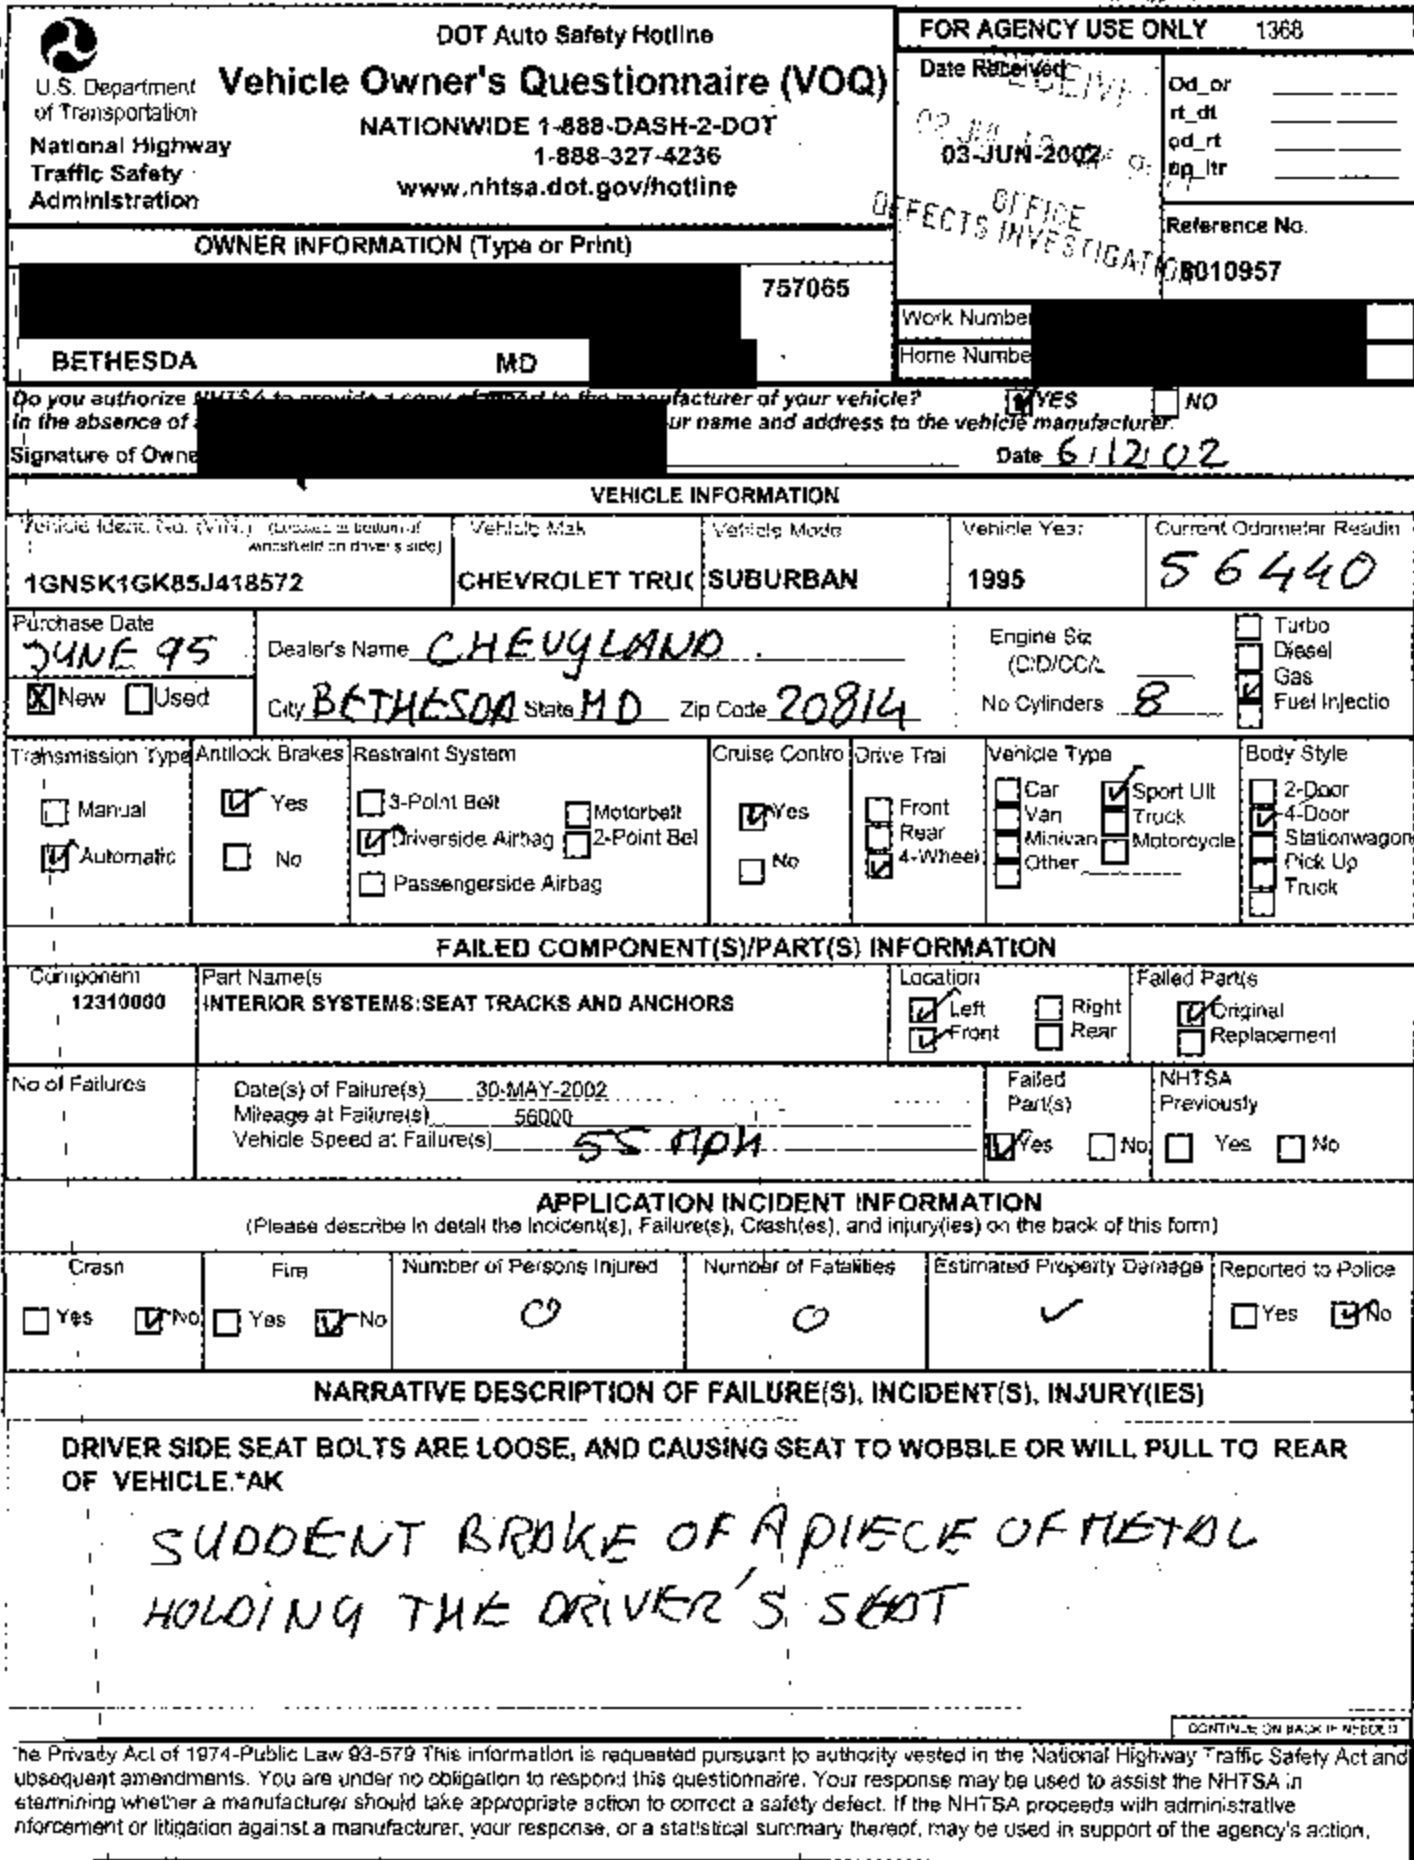 DOT Auto Safety Hotline
Vehicle Owner's Questionnaire (VOQ)
NATIONWIDE 1-888-DASH-2-DOT
1-888-327-4236
www.nhtsa.dot.gov/hotline
U.S. Department
of Transportation
National Highway
Traffic Safety
Administration
FOR AGENCY USE ONLY 1368
Date Received
03-JUN-2002
OFFICE
DEFECTS INVESTIGATIO
Od_or
rt_dt
od_rt
up_ltr
Reference No.
8010957
OWNER INFORMATION (Type or Print)
757065
BETHESDA MD
Work Number
Home Numbe
Do you authorize NHTSA to provide a copy of report to the manufacturer of your vehicle? YES NO
In the absence of ur name and address to the vehicle manufacturer.
Signature of Owne Date 6/12/02
VEHICLE INFORMATION
Vehicle Ident. No. (VIN.) (Located at bottom of
windshield on driver's side)
1GNSK1GK85J418572
Vehicle Mak
CHEVROLET TRUC
Vehicle Mode
SUBURBAN
Vehicle Year
1995
Current Odometer Readin
56440
Purchase Date
JUNE 95
X New Used
Dealer's Name CHEVYLAND
City BETHESDA State MD Zip Code 20814
Engine Siz
(CID/CC/L
No Cylinders 8
Turbo
Diesel
Gas
Fuel Injectio
Transmission Type
Manual
Automatic
Antilock Brakes
Yes
No
Restraint System
3-Point Belt
Driverside Airbag
Passengerside Airbag
Motorbelt
2-Point Bel
Cruise Contro
Yes
No
Drive Trai
Front
Rear
4-Wheel
Vehicle Type
Car
Van
Minivan
Other
Sport Ult
Truck
Motorcycle
Body Style
2-Door
4-Door
Stationwagon
Pick Up
Truck
FAILED COMPONENT(S)/PART(S) INFORMATION
Component
12310000
Part Name(s
INTERIOR SYSTEMS:SEAT TRACKS AND ANCHORS
Location
Left Right
Front Rear
Failed Part(s
Original
Replacement
No of Failures
Date(s) of Failure(s) 30-MAY-2002
Mileage at Failure(s) 56000
Vehicle Speed at Failure(s) 55 MPH
Failed
Part(s)
Yes No
NHTSA
Previously
Yes No
APPLICATION INCIDENT INFORMATION
(Please describe in detail the Incident(s), Failure(s), Crash(es), and injury(ies) on the back of this form)
Crash
Yes No
Fire
Yes No
Number of Persons Injured
0
Number of Fatalities
0
Estimated Property Damage
Reported to Police
Yes No
NARRATIVE DESCRIPTION OF FAILURE(S), INCIDENT(S), INJURY(IES)
DRIVER SIDE SEAT BOLTS ARE LOOSE, AND CAUSING SEAT TO WOBBLE OR WILL PULL TO REAR
OF VEHICLE.*AK
SUDDENT BRAKE OF A PIECE OF METAL
HOLDING THE DRIVER'S SEAT
CONTINUE ON BACK IF NEEDED
he Privacy Act of 1974-Public Law 93-579 This information is requested pursuant to authority vested in the National Highway Traffic Safety Act and
ubsequent amendments. You are under no obligation to respond this questionnaire. Your response may be used to assist the NHTSA in
etermining whether a manufacturer should take appropriate action to correct a safety defect. If the NHTSA proceeds with administrative
nforcement or litigation against a manufacturer, your response, or a statistical summary thereof, may be used in support of the agency's action.